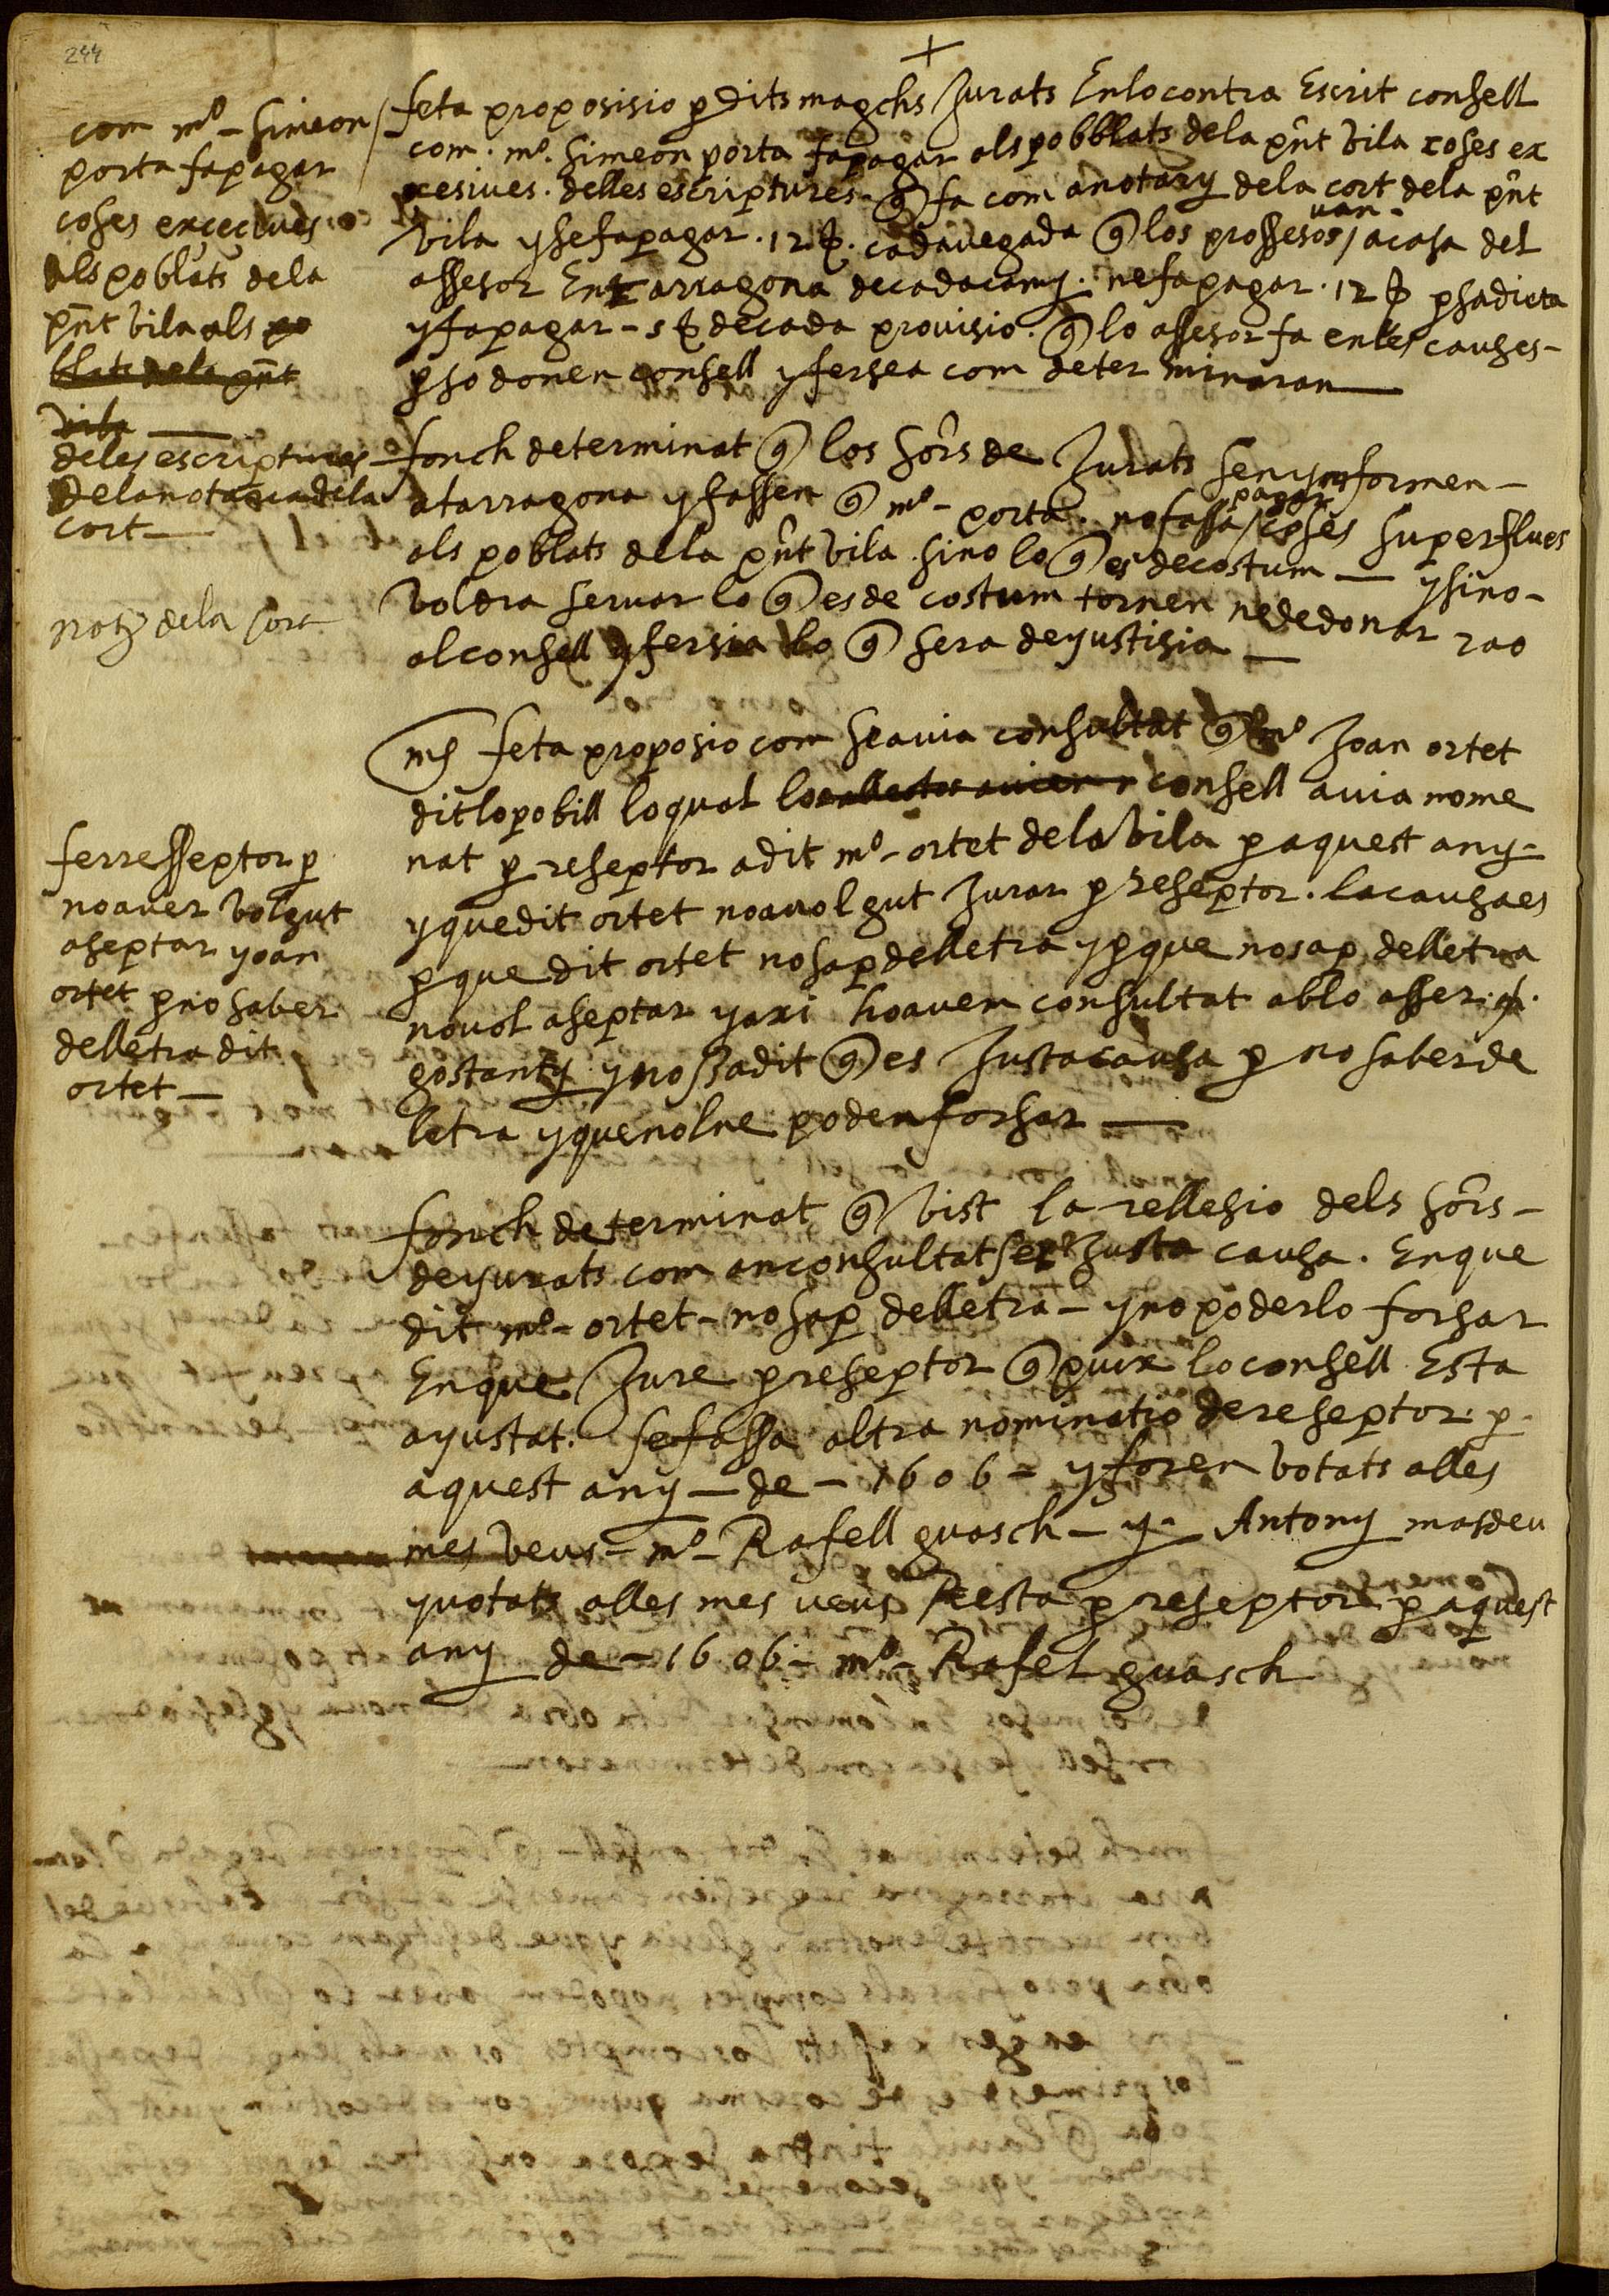 244
+
com mº - simeon
porta fa pagar
coses excecives
als poblats dela
pñt vila als po
blats dela pñt
vila
deles escriptures
dela notaria dela
cort —
notª dela cort
feta proposisio p dits magchs Jurats En lo contra Escrit consell
com . mº. simeon porta fa pagar als pobblats dela pñt vila coses ex
cesives . delles escriptures . q fa com a notary dela cort dela pñt
vila y se fa pagar . 12 ß . cada vegada q los prossesos / van . a casa del
assesor En tarragona de cada camy . ne fa pagar . 12 ß p sa dieta
y fa pagar - s ß de cada provisio . q lo assesor fa en les causes -
p so donen consell y fer sea com determinaran —
fonch determinat q los sors de Jurats sen ynformen -
a tarragona y fassen q mº - porta . no fassa / pagar coses superflues
als poblats dela pñt vila . sino lo q es de costum — y sino -
voldra servar lo q es de costum tornen ne de donar rao
al consell y fer sia lo q sera de yustisia —
mes feta proposio com se avia consultat q mº Joan ortet
dit lo pobill lo qual lo consell avia nome
nat p reseptor a dit mº - ortet dela vila p aquest any -
y que dit ortet no a volgut Jurar p reseptor . la causa es
p que dit ortet no sap delletra y p que no sap delletra
no vol aseptar y axi ho avem consultat ab lo asser .
gostanty y nos a dit q es Justa causa p no saber de
letra y que nol ne poden forsar —
fer resseptor p
no aver volgut
aseptar yoan
ortet p no saber
delletra dit
ortet —
fonch determinat q vist la rellesio dels sors -
de yurats com an consultat ser Justa causa . En que
dit mº - ortet - no sap delletra - y no poderlo forsar
En que Jure p reseptor q puix lo consell Esta
ayustat . se fassa altra nominatio de reseptor . p .
aquest any — de - 1606 - y foren votats alles
mes veus - mº - Rafell guasch - y - Antony masdeu
y votats alles mes veus Resta p reseptor p aquest
any de - 1606 - mº - Rafel guasch